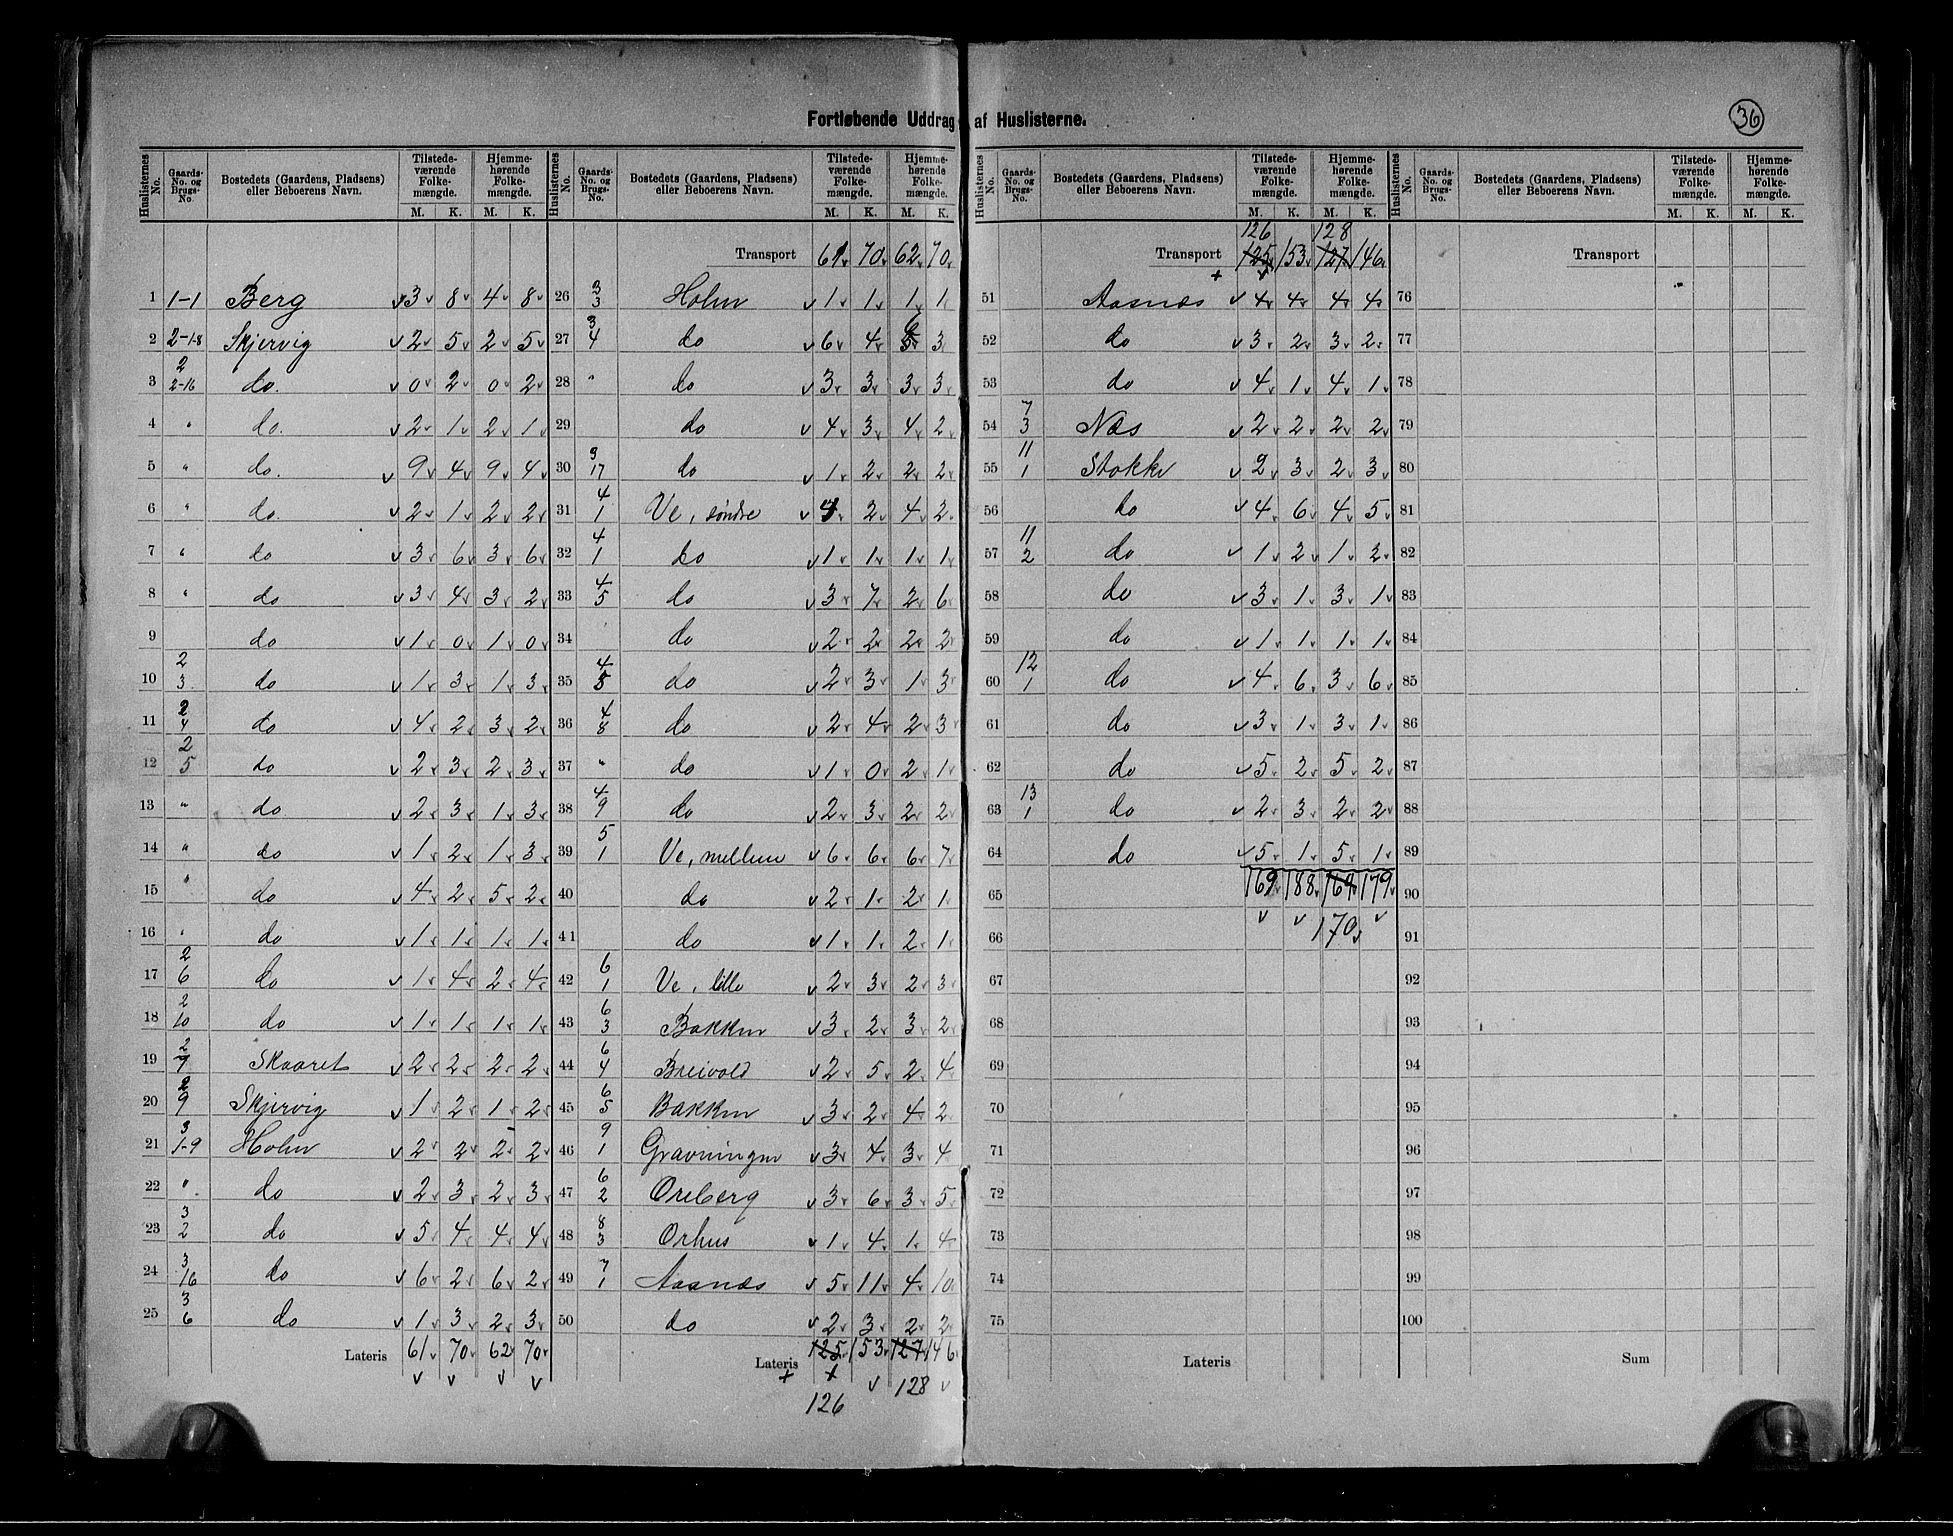 Fortløbende Uddrag af Huslisterne.
36
Huslisternes No. Gaards-No. og Brugs-No. Bostedets (Gaardens, Pladsens) eller Beboerens Navn. Tilstedeværende Folkemængde. M. K. Hjemmehørende Folkemængde. M. K.
1 1-1 Berg 3 8 4 8
2 2-18 Skjervig 2 5 2 5
3 2 2-16 do. 0 2 0 2
4 " do. 2 1 2 1
5 " do. 9 4 9 4
6 " do. 2 1 2 2
7 " do 3 6 3 6
8 " do 3 4 3 2
9 do 1 0 1 0
10 2 3 do 1 3 1 3
11 2 4 do 4 2 3 2
12 2 5 do 2 3 2 3
13 " do 2 3 1 3
14 " do 1 2 1 3
15 " do 4 2 5 2
16 " do 1 1 1 1
17 2 6 do 1 4 2 4
18 2 10 do 1 1 1 1
19 2 7 Skaaret 2 2 2 2
20 2 9 Skjervig 1 2 1 2
21 3 1-9 Holm 2 2 2 2
22 " do 2 3 2 3
23 3 2 do 5 4 4 4
24 3 16 do 6 2 6 2
25 3 6 do 1 3 2 3
Lateris 61 70 62 70
Huslisternes No. Gaards-No. og Brugs-No. Bostedets (Gaardens, Pladsens) eller Beboerens Navn. Tilstedeværende Folkemængde. M. K. Hjemmehørende Folkemængde. M. K.
Transport 61 70 62 70
26 3 3 Holm 1 1 1 1
27 3 4 do 6 4 6 3
28 " do 3 3 3 3
29 do 4 3 4 2
30 3 17 do 1 2 2 2
31 4 1 Ve, søndre 4 2 4 2
32 4 1 do 1 1 1 1
33 4 5 do 3 7 2 6
34 do 2 2 2 2
35 4 5 do 2 3 1 3
36 4 8 do 2 4 2 3
37 " do 1 0 2 1
38 4 9 do 2 3 2 2
39 5 1 Ve, mellem 6 6 6 7
40 do 2 1 2 1
41 do 1 1 2 1
42 6 1 Ve, lille 2 3 2 3
43 6 3 Bakken 3 2 3 2
44 6 4 Breivold 2 5 2 4
45 6 5 Bakken 3 2 4 2
46 9 1 Gravningen 3 4 3 4
47 6 2 Oreberg 3 6 3 5
48 8 3 Orhus 1 4 1 4
49 7 1 Aasnæs 5 11 4 10
50 do 2 3 2 2
Lateris 125 153 127 146
126 128
Huslisternes No. Gaards-No. og Brugs-No. Bostedets (Gaardens, Pladsens) eller Beboerens Navn. Tilstedeværende Folkemængde. M. K. Hjemmehørende Folkemængde. M. K.
126 128
Transport 125 153 127 146
51 Aasnæs 4 4 4 4
52 do 3 2 3 2
53 do 4 1 4 1
54 7 3 Næs 2 2 2 2
55 11 1 Stokke 2 3 2 3
56 do 4 6 4 5
57 11 2 do 1 2 1 2
58 do 3 1 3 1
59 do 1 1 1 1
60 12 1 do 4 6 3 6
61 do 3 1 3 1
62 do 5 2 5 2
63 13 1 do 2 3 2 2
64 do 5 1 5 1
65 169 188 169 179
66 170
67
68
69
70
71
72
73
74
75
Lateris
Huslisternes No. Gaards-No. og Brugs-No. Bostedets (Gaardens, Pladsens) eller Beboerens Navn. Tilstedeværende Folkemængde. M. K. Hjemmehørende Folkemængde. M. K.
Transport
76
77
78
79
80
81
82
83
84
85
86
87
88
89
90
91
92
93
94
95
96
97
98
99
100
Sum